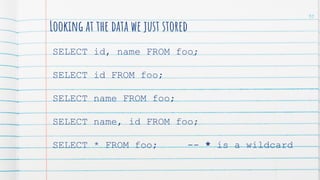 Looking at the data we just stored
SELECT id, name FROM foo;
SELECT id FROM foo;
SELECT name FROM foo;
SELECT name, id FROM foo;
SELECT * FROM foo; -- * is a wildcard